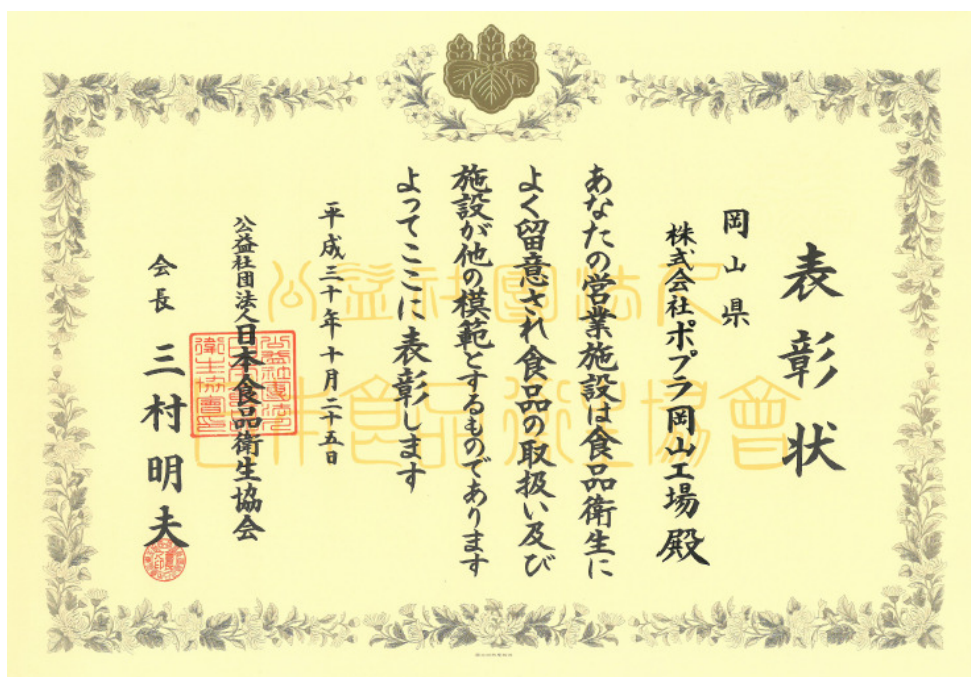 表彰状
岡山県
株式会社ポプラ岡山工場殿
あなたの営業施設は食品衛生に
よく留意され食品の取扱い及び
施設が他の模範とするものであります
よってここに表彰します
平成三十年十月二十五日
公益社団法人日本食品衛生協会
会長 三村明夫
公益社團法人
日本食品衛生協會